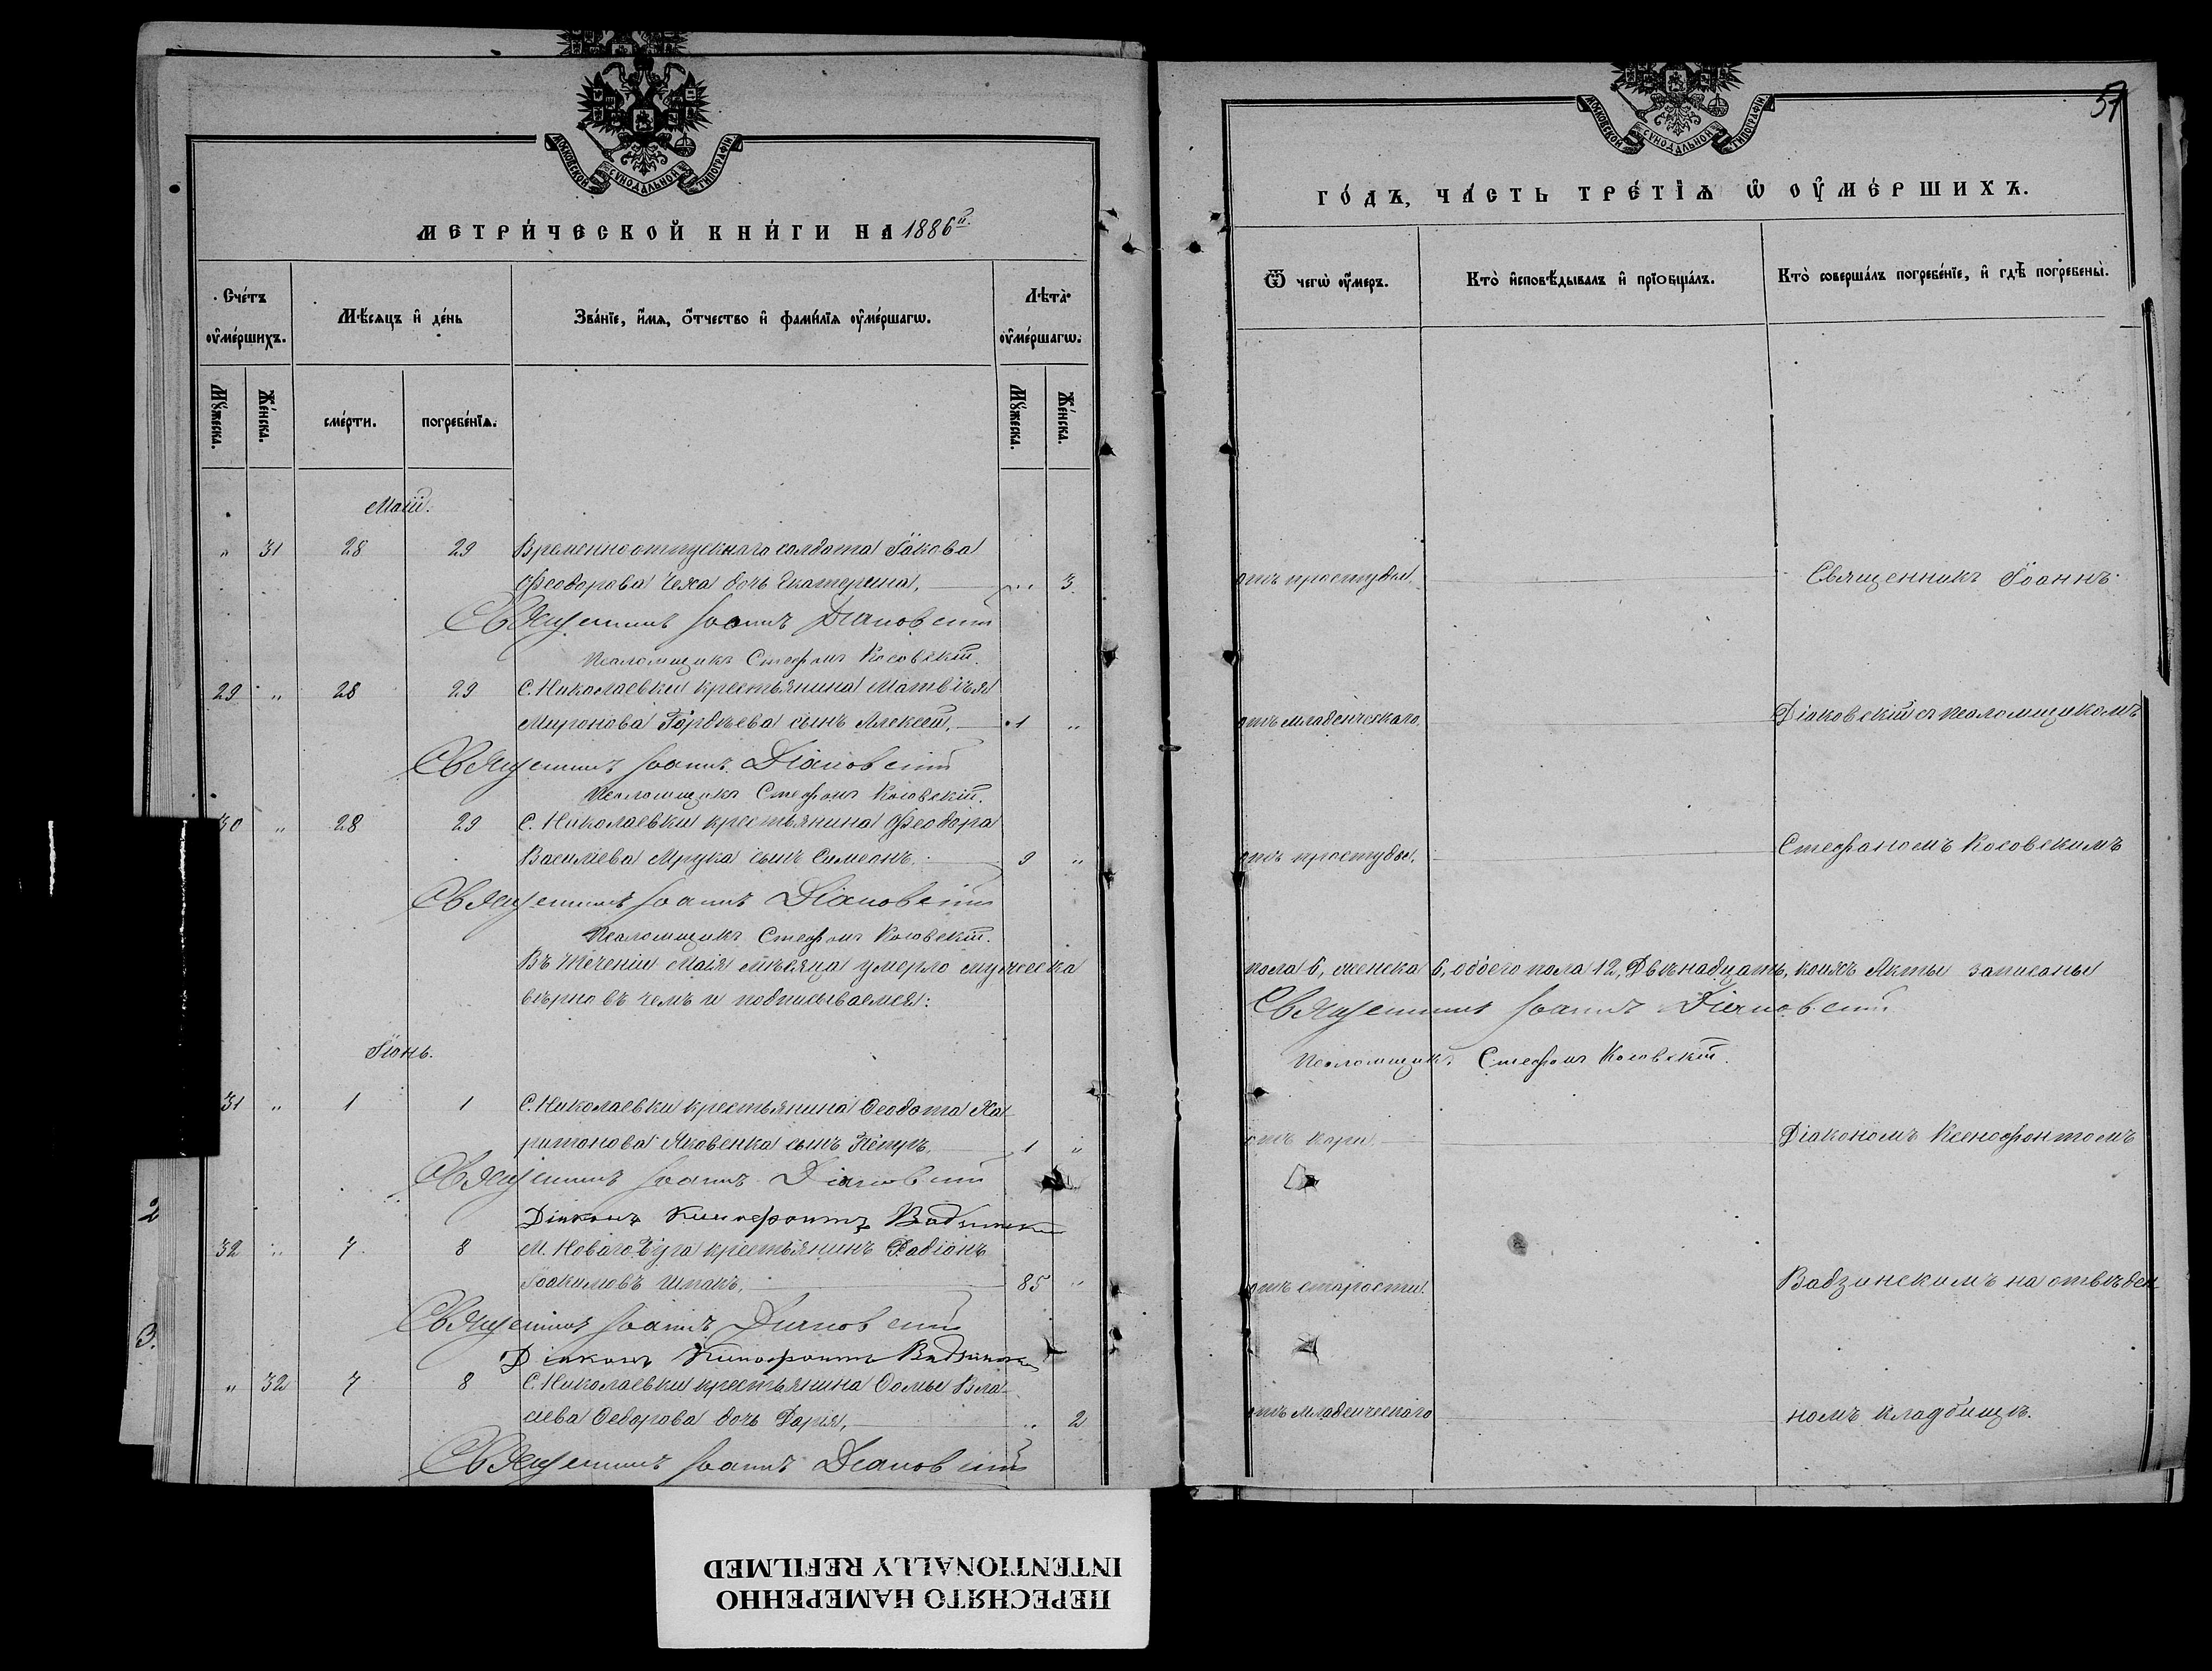 МОСКОВСКОЙ СѴНОДАЛЬНОЙ ТИПОГРАФІИ
МЕТРИ́ЧЕСКОЙ КНИ́ГИ НА 1886й
Сче́тъ ᲂу҆ме́ршихъ.
Мѣ́сяцъ и҆ де́нь
Зва́нїе, и҆́мѧ, ѻ҆́тчество и҆ фами́лїѧ ᲂу҆ме́ршагѡ.
Лѣта̀ ᲂу҆ме́ршагѡ.
Мꙋ́жеска.
Же́нска.
сме́рти.
погребе́нїѧ.
Мꙋ́жеска.
Же́нска.
Маій.
" 31 28 29 Временноотпускнаго солдата Іакова
Феодорова Чеха дочь Екатерина, " 3
Священникъ Іоаннъ Діаковскій
Псаломщикъ Стефанъ Косовскій.
29 " 28 29 С. Николаевки крестьянина Матвѣя
Миронова Гордѣева сынъ Алексей, 1 "
Священникъ Іоаннъ Діаковскій
Псаломщикъ Стефанъ Косовскій.
30 " 28 29 С. Николаевки крестьянина Феодора
Василіева Мрука сынъ Симеонъ, 9 "
Священникъ Іоаннъ Діаковскій
Псаломщикъ Стефанъ Косовскій.
Въ теченіи Маія мѣсяца умерло мужеска
вѣрно въ чемъ и подписываемся:
Іюнь.
31 " 1 1 С. Николаевки крестьянина Ѳеодота Ха
ритонова Яковенка сынъ Петръ, 1 "
Священникъ Іоаннъ Діаковскій
Діаконъ Ксенофонтъ Вадзинскій
32 " 7 8 М. Новаго Буга крестьянинъ Радіонъ
Іоакимовъ Шпакъ, 85 "
Священникъ Іоаннъ Діаковскій
Діаконъ Ксенофонтъ Вадзинскій
" 32 7 8 С. Николаевки крестьянина Ѳомы Вла
сіева Ѳедорова дочь Дарія, " 2
Священникъ Іоаннъ Діаковскій
2
3.
57
МОСКОВСКОЙ СѴНОДАЛЬНОЙ ТИПОГРАФІИ
ГО́ДЪ, ЧА́СТЬ ТРЕ́ТЇѦ Ѡ҆ ОУ҆МЕ́РШИХЪ.
Ѿ чегѡ̀ ᲂу҆́меръ.
Кто̀ и҆сповѣ́дывалъ и҆ прїѻбща́лъ.
Кто̀ соверша́лъ погребе́нїе, и҆ гдѣ̀ погребены̀.
отъ простуды. Священникъ Іоаннъ
отъ младенческаго Діаковскій съ псаломщикомъ
отъ простуды. Стефаномъ Косовскимъ
пола 6, женска 6, обоего пола 12, Двѣнадцать, коихъ Акты записаны
Священникъ Іоаннъ Діаковскій
Псаломщикъ Стефанъ Косовскій.
отъ кори Діакономъ Ксенофонтомъ
отъ старости Вадзинскимъ на отвѣден
отъ младенческаго номъ кладбищѣ.
ПЕРЕСНЯТО НАМЕРЕННО
INTENTIONALLY REFILMED